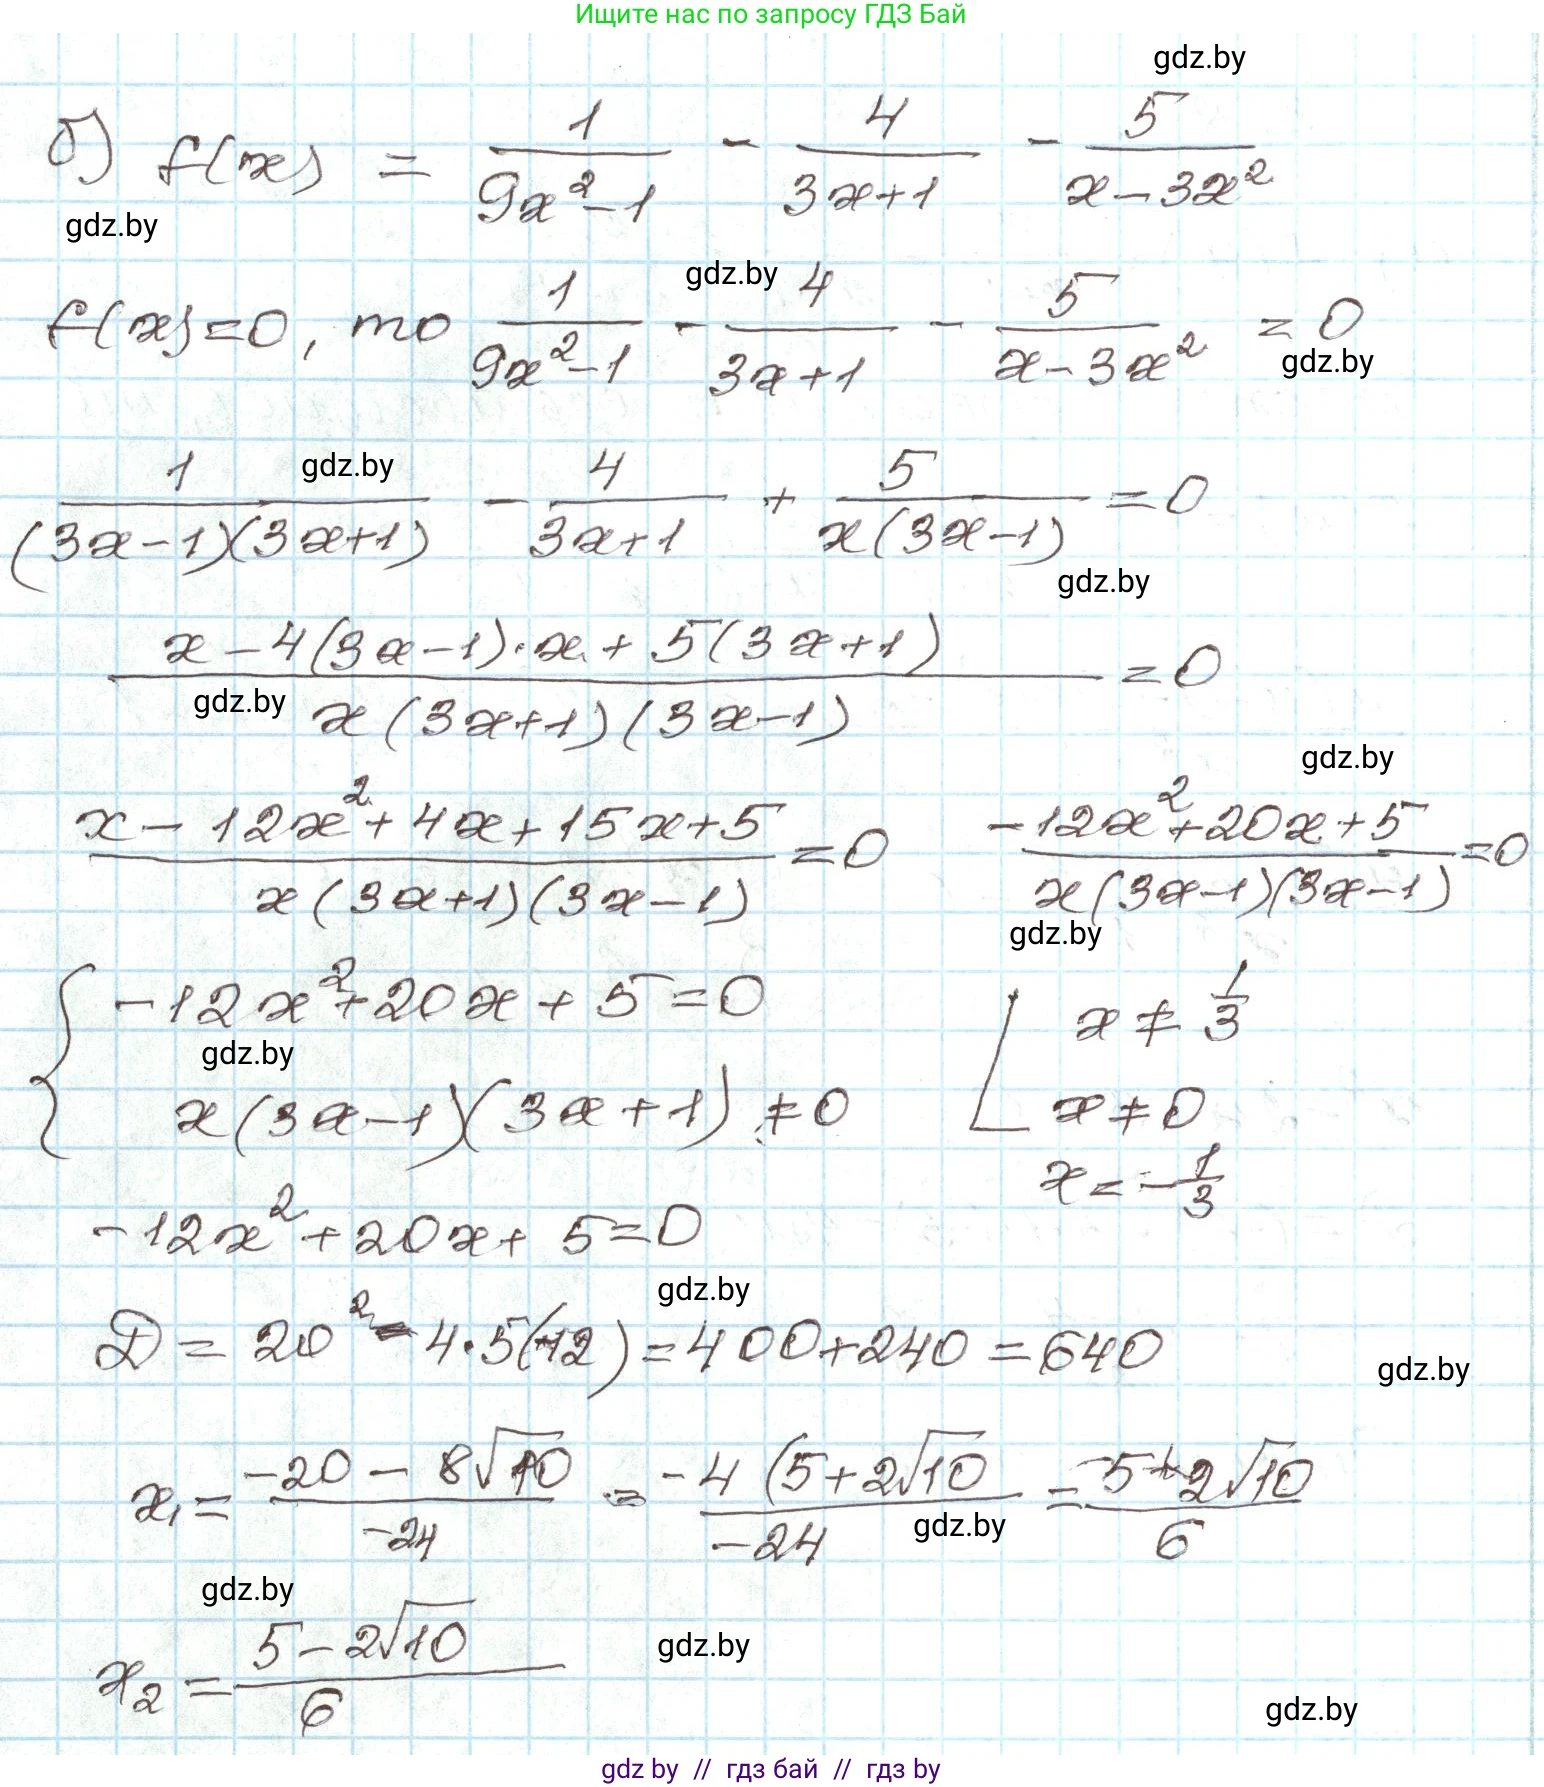 Ищите нас по запросу ГДЗ Бай
gdz.by
б) f(x) = 1/(9x²-1) - 4/(3x+1) - 5/(x-3x²)
gdz.by
gdz.by
f(x)=0, то 1/(9x²-1) - 4/(3x+1) - 5/(x-3x²) = 0
gdz.by
gdz.by
1/((3x-1)(3x+1)) - 4/(3x+1) + 5/(x(3x-1)) = 0
gdz.by
(x-4(3x-1)·x+5(3x+1))/(x(3x+1)(3x-1)) = 0
gdz.by
gdz.by
(x-12x²+4x+15x+5)/(x(3x+1)(3x-1)) = 0 (-12x²+20x+5)/(x(3x-1)(3x-1)) = 0
gdz.by
{ -12x²+20x+5=0 [ x ≠ 1/3
gdz.by
x(3x-1)(3x+1) ≠ 0 x ≠ 0
x = -1/3
-12x²+20x+5=0
gdz.by
D = 20² - 4·5(-12) = 400+240 = 640
gdz.by
x₁ = (-20 - 8√10)/(-24) = (-4(5+2√10)/(-24) = (-5+2√10)/6
gdz.by
gdz.by
x₂ = (5-2√10)/6
gdz.by
gdz.by
gdz by // гдз бай // гдз by